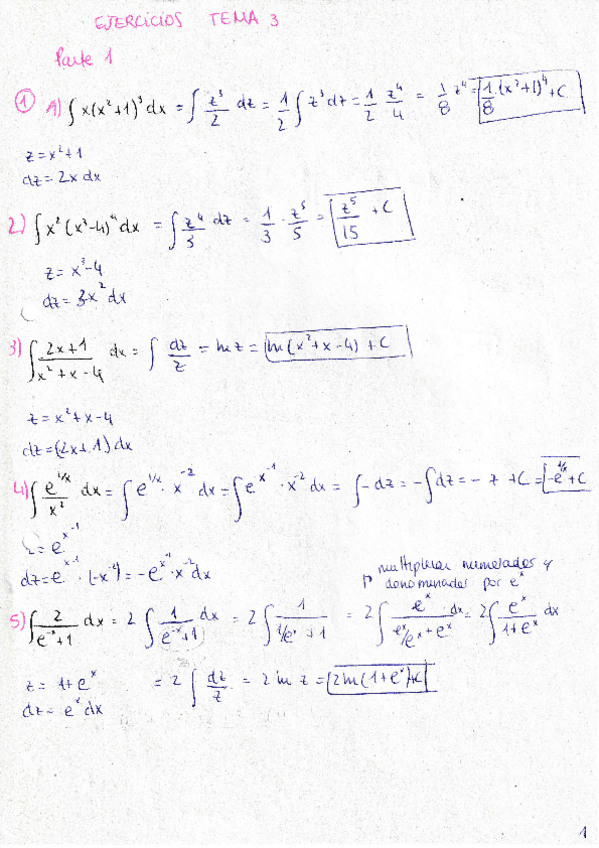 EJERCICIOS TEMA 3
Parte 1
① 1) ∫ x(x²+1)³ dx = ∫ z³/2 dz = 1/2 ∫ z³ dz = 1/2 z⁴/4 = 1/8 z⁴ = 1/8 · (x²+1)⁴ + C
z = x²+1
dz = 2x dx
2) ∫ x² (x³-4)⁴ dx = ∫ z⁴/3 dz = 1/3 · z⁵/5 = z⁵/15 + C
z = x³-4
dz = 3x² dx
3) ∫ (2x+1)/(x²+x-4) dx = ∫ dz/z = ln z = ln(x²+x-4) + C
z = x²+x-4
dz = (2x+1) dx
4) ∫ e^(1/x)/x² dx = ∫ e^(1/x) · x⁻² dx = ∫ e^(x⁻¹) · x⁻² dx = ∫ -dz = -∫ dz = - z + C = -e^(1/x) + C
z = e^(x⁻¹)
dz = e^(x⁻¹) · (-x⁻²) = -e^(x⁻¹) · x⁻² dx
multiplicar numerador y
denominador por eˣ
5) ∫ 2/(e⁻ˣ+1) dx = 2 ∫ 1/(e⁻ˣ+1) dx = 2 ∫ 1/(1/eˣ + 1) = 2 ∫ eˣ/(eˣ/eˣ + eˣ) dx = 2 ∫ eˣ/(1+eˣ) dx
z = 1+eˣ = 2 ∫ dz/z = 2 ln z = 2 ln(1+eˣ)+C
dz = eˣ dx
1